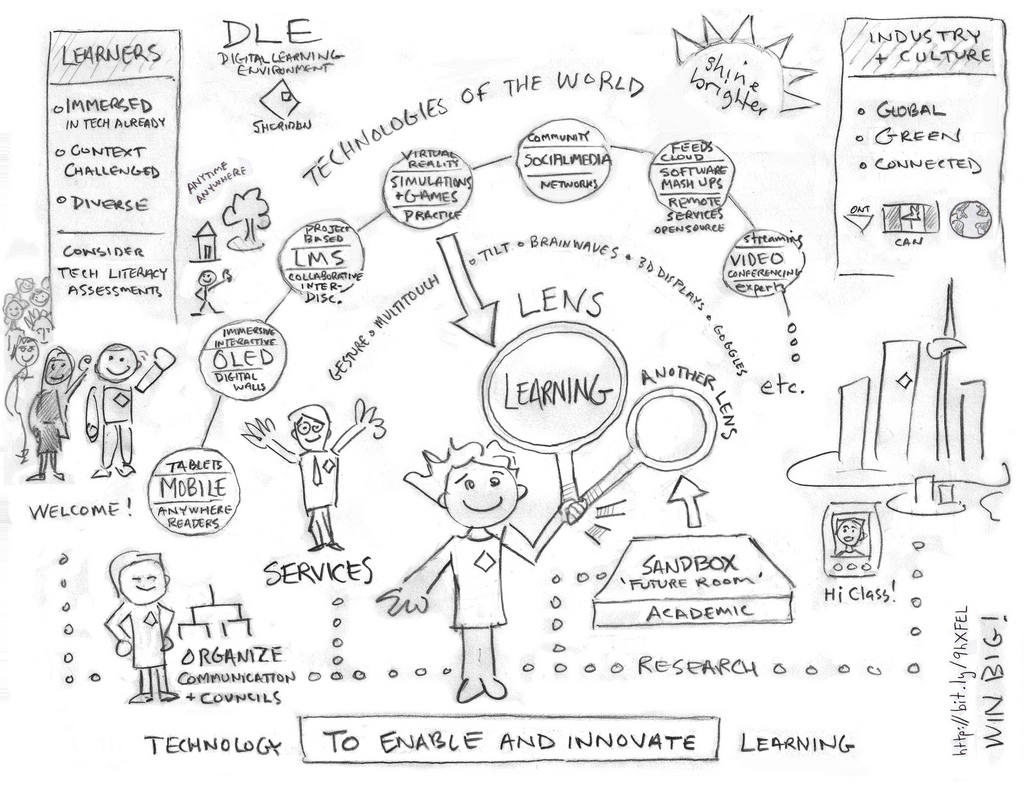 LEARNERS
IMMERSED
IN TECH ALREADY
CONTEXT
CHALLENGED
DIVERSE
CONSIDER
TECH LITERACY
ASSESSMENTS
DLE
DIGITAL LEARNING
ENVIRONMENT
SHERIDAN
TECHNOLOGIES OF THE WORLD
shine
brighter
INDUSTRY
+ CULTURE
GLOBAL
GREEN
CONNECTED
ONT
CAN
ANYTIME
ANYWHERE
TABLETS
MOBILE
ANYWHERE
READERS
IMMERSIVE
INTERACTIVE
OLED
DIGITAL
WALLS
PROJECT
BASED
LMS
COLLABORATIVE
INTER-
DISC.
VIRTUAL
REALITY
SIMULATIONS
+ GAMES
PRACTICE
COMMUNITY
SOCIAL MEDIA
NETWORKS
FEEDS
CLOUD
SOFTWARE
MASH UPS
REMOTE
SERVICES
OPEN SOURCE
streaming
VIDEO
CONFERENCING
experts
etc.
GESTURE • MULTITOUCH • TILT • BRAINWAVES • 3D DISPLAYS • GOGGLES
LENS
LEARNING
ANOTHER LENS
WELCOME!
SERVICES
SANDBOX
'FUTURE ROOM'
ACADEMIC
Hi Class!
ORGANIZE
COMMUNICATION
+ COUNCILS
RESEARCH
http://bit.ly/9hXFEL
WIN BIG!
TECHNOLOGY TO ENABLE AND INNOVATE LEARNING